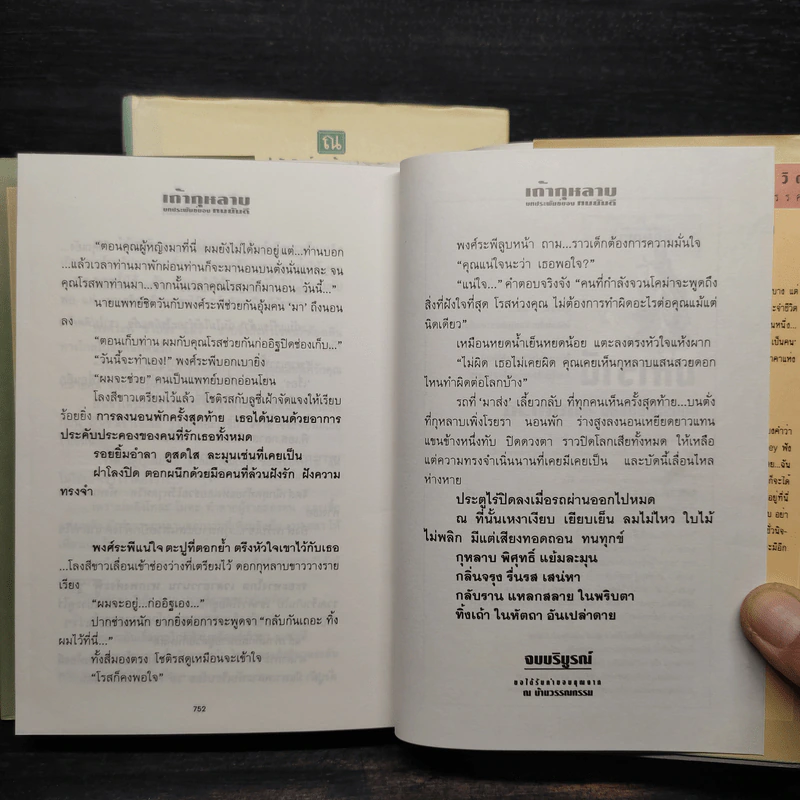 ณ
เถ้ากุหลาบ
บทประพันธ์ของ ทมยันตี
“ตอนคุณผู้หญิงมาที่นี่ ผมยังไม่ได้มาอยู่ แต่...ท่านบอก
...แล้วเวลาท่านมาพักผ่อนท่านก็จะมานอนบนตั่งนั่นแหละ จน
คุณโรสพาท่านมา...จากนั้นเวลาคุณโรสมาก็มานอน วันนี้...”
นายแพทย์ชิตวันกับพงศ์ระพีช่วยกันอุ้มคน ‘มา’ ถึงนอน
ลง
“ตอนเก็บท่าน ผมกับคุณโรสช่วยกันก่ออิฐปิดช่องเก็บ...”
“วันนี้จะทำเอง!” พงศ์ระพีบอกเบายิ่ง
“ผมจะช่วย” คนเป็นแพทย์บอกอ่อนโยน
โลงสีขาวเตรียมไว้แล้ว โชติรสกับลูซี่เฝ้าจัดแจงให้เรียบ
ร้อยยิ่ง การลงนอนพักครั้งสุดท้าย เธอได้นอนด้วยอาการ
ประคับประคองของคนที่รักเธอทั้งหมด
รอยยิ้มอำลา ดูสดใส ละมุนเช่นที่เคยเป็น
ฝาโลงปิด ตอกผนึกด้วยมือคนที่ล้วนฝังรัก ฝังความ
ทรงจำ
พงศ์ระพีแน่ใจ ตะปูที่ตอกย้ำ ตรึงหัวใจเขาไว้กับเธอ
...โลงสีขาวเลื่อนเข้าช่องว่างที่เตรียมไว้ ดอกกุหลาบขาววางราย
เรียง
“ผมจะอยู่...ก่ออิฐเอง...”
ปากช่างหนัก ยากยิ่งต่อการจะพูดจา “กลับกันเถอะ ทิ้ง
ผมไว้ที่นี่...”
ทั้งสี่มองตรง โชติรสดูเหมือนจะเข้าใจ
“โรสก็คงพอใจ”
752
เถ้ากุหลาบ
บทประพันธ์ของ ทมยันตี
พงศ์ระพีลูบหน้า ถาม...ราวเด็กต้องการความมั่นใจ
“คุณแน่ใจนะว่า เธอพอใจ?”
“แน่ใจ...” คำตอบจริงจัง “คนที่กำลังจวนโคม่าจะพูดถึง
สิ่งที่ฝังใจที่สุด โรสห่วงคุณ ไม่ต้องการทำผิดอะไรต่อคุณแม้แต่
นิดเดียว”
เหมือนหยดน้ำเย็นหยดน้อย แตะลงตรงหัวใจแห้งผาก
“ไม่ผิด เธอไม่เคยผิด คุณเคยเห็นกุหลาบแสนสวยดอก
ไหนทำผิดต่อโลกบ้าง”
รถที่ ‘มาส่ง’ เลี้ยวกลับ ที่ทุกคนเห็นครั้งสุดท้าย...บนตั่ง
ที่กุหลาบเพิ่งโรยรา นอนพัก ร่างสูงลงนอนเหยียดยาวแทน
แขนข้างหนึ่งทับ ปิดดวงตา ราวปิดโลกเสียทั้งหมด ให้เหลือ
แต่ความทรงจำเนิ่นนานที่เคยมีเคยเป็น และบัดนี้เลื่อนไหล
ห่างหาย
ประตูไร่ปิดลงเมื่อรถผ่านออกไปหมด
ณ ที่นั้นเหงาเงียบ เยียบเย็น ลมไม่ไหว ใบไม้
ไม่พลิก มีแต่เสียงทอดถอน ทนทุกข์
กุหลาบ พิศุทธิ์ แย้มละมุน
กลิ่นจรุง รื่นรส เสน่หา
กลับราน แหลกสลาย ในพริบตา
ทิ้งเถ้า ในหัตถา อันเปล่าดาย
จบบริบูรณ์
ขอได้รับคำขอบคุณจาก
ณ บ้านวรรณกรรม